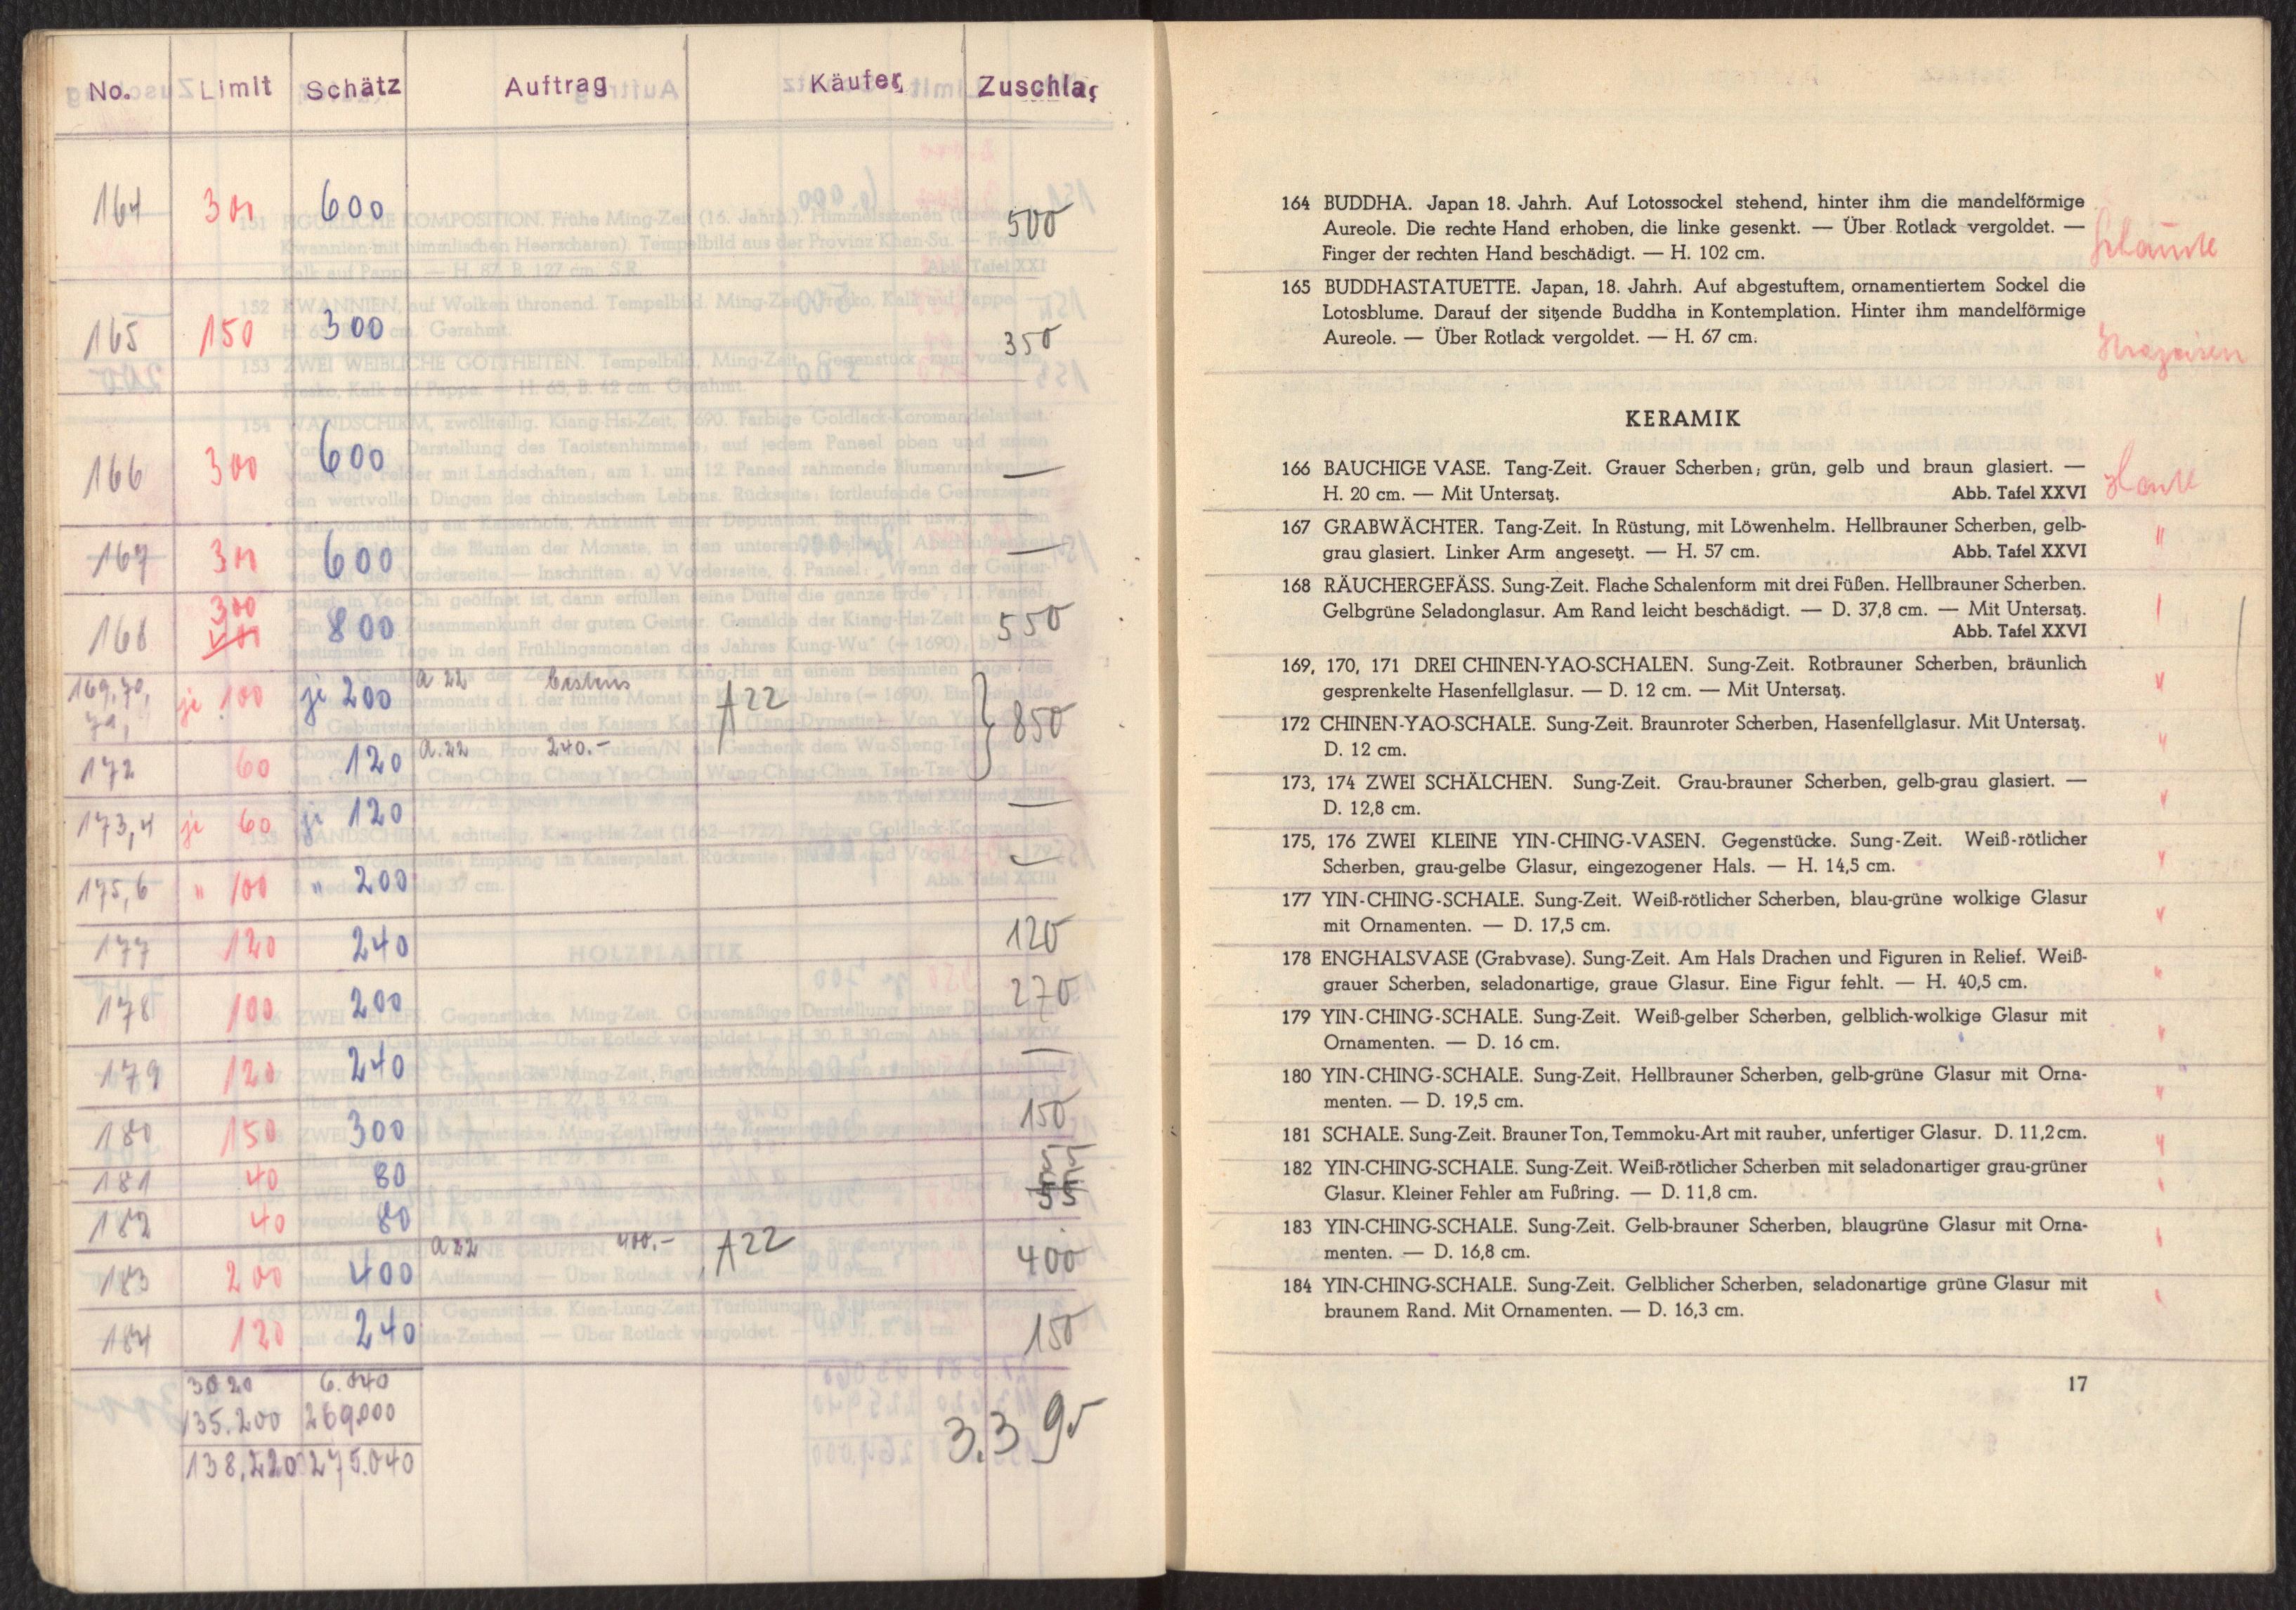 No. Limit Schätz Auftrag Käufer Zuschlag
164 300 600 500
165 150 300 350
166 300 600 —
167 300 600 —
168 300 800 550
169,70, je 100 je 200 a 22 bestens A22 } 850
71,
172 60 120 a. 22 240.-
173,4 je 60 je 120 —
175,6 " 100 " 200 —
177 120 240 120
178 100 200 270
179 120 240 —
180 150 300 150
181 40 80
182 40 80 55
183 200 400 a 22 400.- A22 400
184 120 240 150
3020 6.040
135.200 269.000
138.220 275.040
3.395
164 BUDDHA. Japan 18. Jahrh. Auf Lotossockel stehend, hinter ihm die mandelförmige
Aureole. Die rechte Hand erhoben, die linke gesenkt. — Über Rotlack vergoldet. —
Finger der rechten Hand beschädigt. — H. 102 cm.
165 BUDDHASTATUETTE. Japan, 18. Jahrh. Auf abgestuftem, ornamentiertem Sockel die
Lotosblume. Darauf der sitzende Buddha in Kontemplation. Hinter ihm mandelförmige
Aureole. — Über Rotlack vergoldet. — H. 67 cm.
KERAMIK
166 BAUCHIGE VASE. Tang-Zeit. Grauer Scherben; grün, gelb und braun glasiert. —
H. 20 cm. — Mit Untersatz. Abb. Tafel XXVI
167 GRABWÄCHTER. Tang-Zeit. In Rüstung, mit Löwenhelm. Hellbrauner Scherben, gelb-
grau glasiert. Linker Arm angesetzt. — H. 57 cm. Abb. Tafel XXVI "
168 RÄUCHERGEFÄSS. Sung-Zeit. Flache Schalenform mit drei Füßen. Hellbrauner Scherben.
Gelbgrüne Seladonglasur. Am Rand leicht beschädigt. — D. 37,8 cm. — Mit Untersatz.
Abb. Tafel XXVI
169, 170, 171 DREI CHINEN-YAO-SCHALEN. Sung-Zeit. Rotbrauner Scherben, bräunlich
gesprenkelte Hasenfellglasur. — D. 12 cm. — Mit Untersatz.
172 CHINEN-YAO-SCHALE. Sung-Zeit. Braunroter Scherben, Hasenfellglasur. Mit Untersatz.
D. 12 cm.
173, 174 ZWEI SCHÄLCHEN. Sung-Zeit. Grau-brauner Scherben, gelb-grau glasiert. —
D. 12,8 cm.
175, 176 ZWEI KLEINE YIN-CHING-VASEN. Gegenstücke. Sung-Zeit. Weiß-rötlicher
Scherben, grau-gelbe Glasur, eingezogener Hals. — H. 14,5 cm.
177 YIN-CHING-SCHALE. Sung-Zeit. Weiß-rötlicher Scherben, blau-grüne wolkige Glasur
mit Ornamenten. — D. 17,5 cm.
178 ENGHALSVASE (Grabvase). Sung-Zeit. Am Hals Drachen und Figuren in Relief. Weiß-
grauer Scherben, seladonartige, graue Glasur. Eine Figur fehlt. — H. 40,5 cm.
179 YIN-CHING-SCHALE. Sung-Zeit. Weiß-gelber Scherben, gelblich-wolkige Glasur mit
Ornamenten. — D. 16 cm.
180 YIN-CHING-SCHALE. Sung-Zeit. Hellbrauner Scherben, gelb-grüne Glasur mit Orna-
menten. — D. 19,5 cm.
181 SCHALE. Sung-Zeit. Brauner Ton, Temmoku-Art mit rauher, unfertiger Glasur. D. 11,2 cm.
182 YIN-CHING-SCHALE. Sung-Zeit. Weiß-rötlicher Scherben mit seladonartiger grau-grüner
Glasur. Kleiner Fehler am Fußring. — D. 11,8 cm.
183 YIN-CHING-SCHALE. Sung-Zeit. Gelb-brauner Scherben, blaugrüne Glasur mit Orna-
menten. — D. 16,8 cm.
184 YIN-CHING-SCHALE. Sung-Zeit. Gelblicher Scherben, seladonartige grüne Glasur mit
braunem Rand. Mit Ornamenten. — D. 16,3 cm.
17